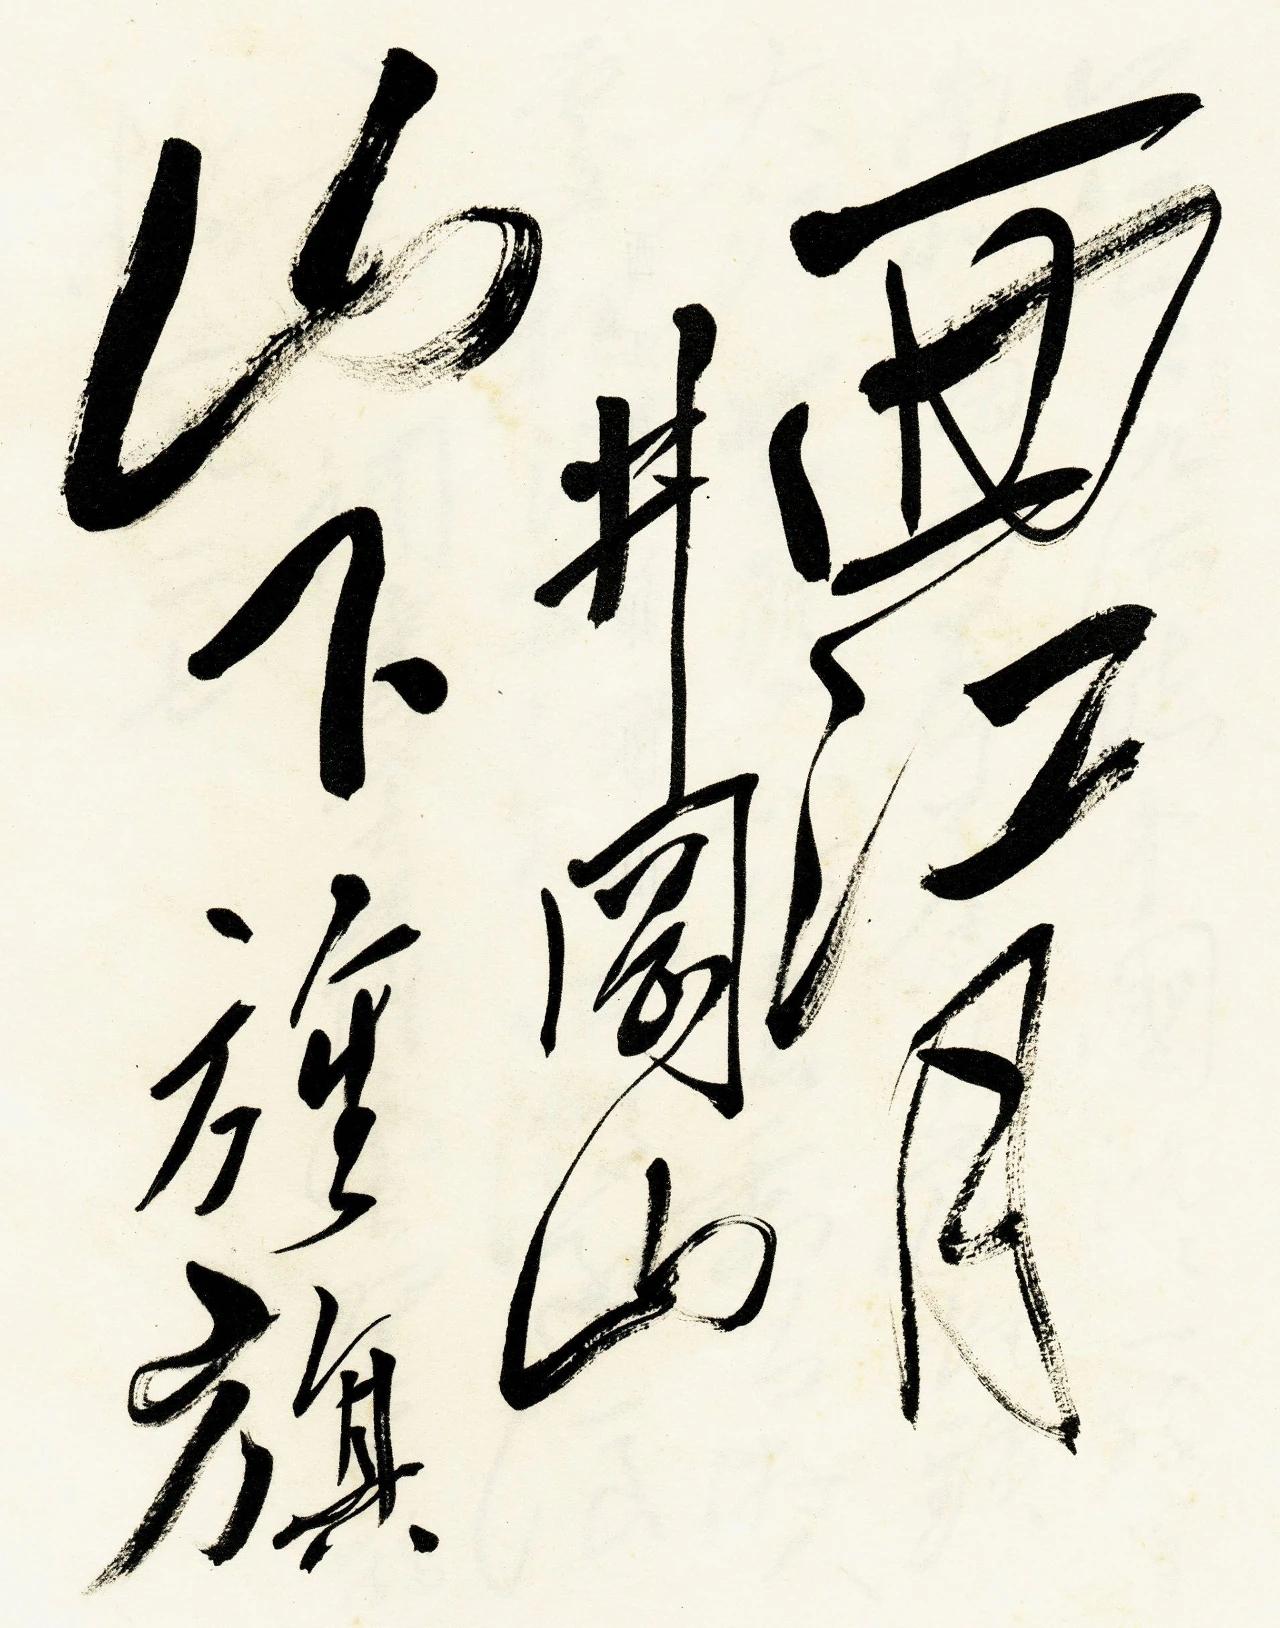 西江月
井岡山
山下旌旗